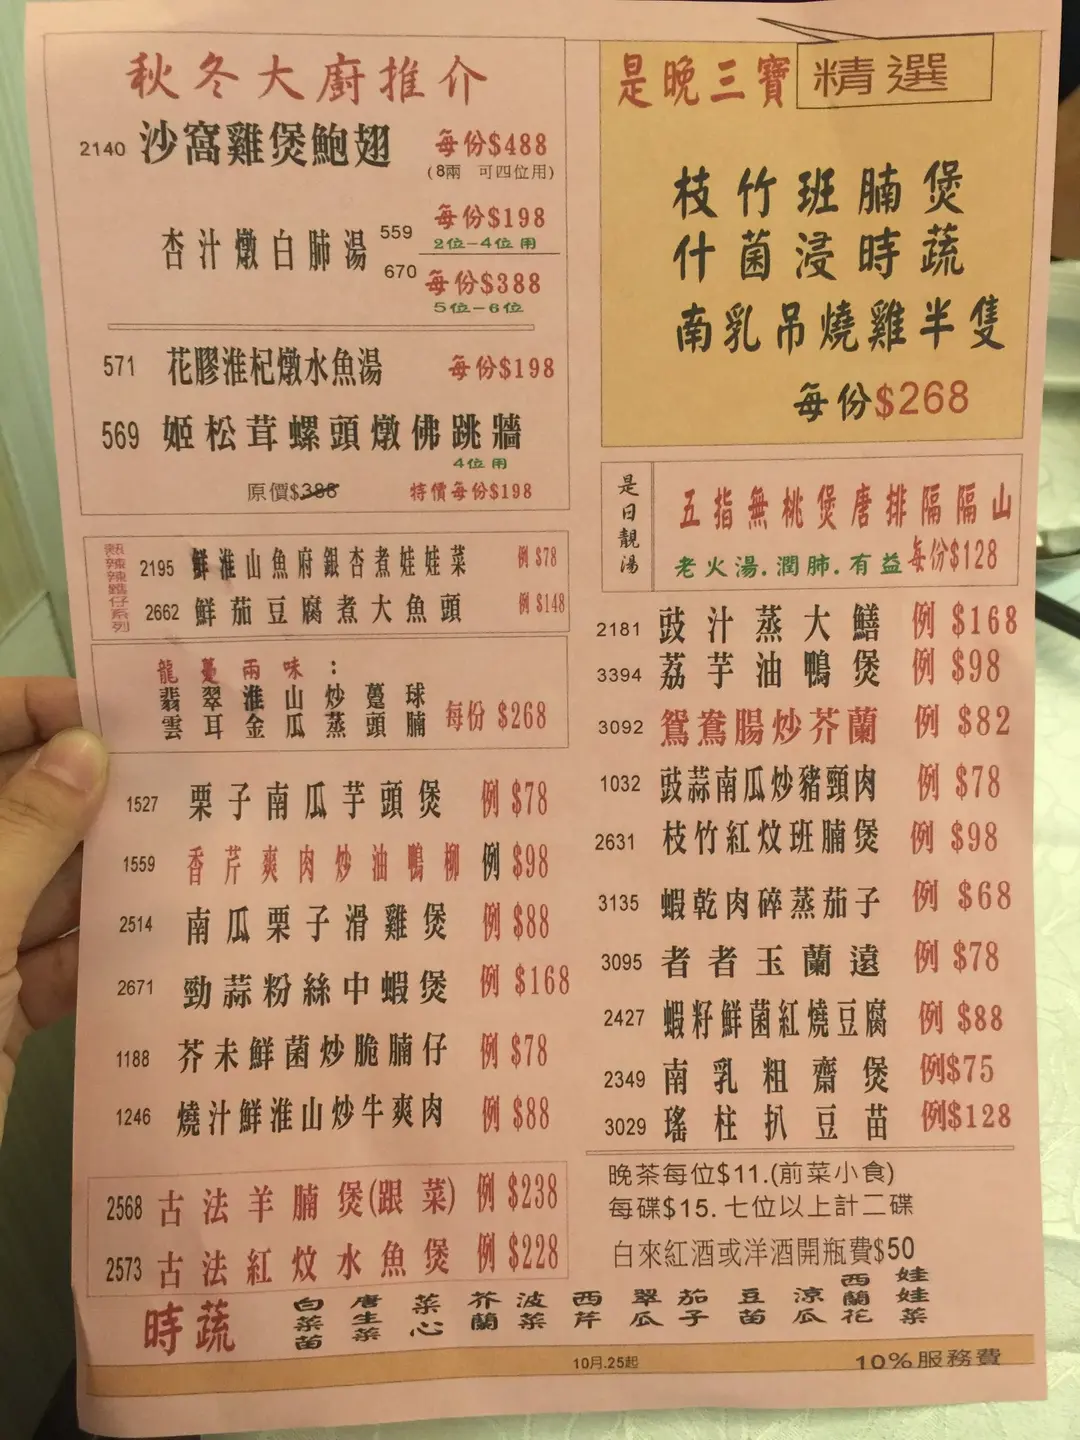 秋冬大廚推介
2140 沙窩雞煲鮑翅 每份$488
(8兩 可四位用)
杏汁燉白肺湯 559 每份$198
2位-4位用
670 每份$388
5位-6位
571 花膠淮杞燉水魚湯 每份$198
569 姬松茸螺頭燉佛跳牆
4位用
原價$388 特價每份$198
熱辣辣鑊仔系列
2195 鮮淮山魚府銀杏煮娃娃菜 例 $78
2662 鮮茄豆腐煮大魚頭 例 $148
龍躉兩味：
翡翠淮山炒躉球
雲耳金瓜蒸頭腩 每份 $268
1527 栗子南瓜芋頭煲 例 $78
1559 香芹爽肉炒油鴨柳 例 $98
2514 南瓜栗子滑雞煲 例 $88
2671 勁蒜粉絲中蝦煲 例 $168
1188 芥末鮮菌炒脆腩仔 例 $78
1246 燒汁鮮淮山炒牛爽肉 例 $88
2568 古法羊腩煲(跟菜) 例 $238
2573 古法紅炆水魚煲 例 $228
是晚三寶 精選
枝竹班腩煲
什菌浸時蔬
南乳吊燒雞半隻
每份$268
是日靚湯
五指無桃煲唐排隔隔山
老火湯.潤肺.有益 每份$128
2181 豉汁蒸大鱔 例 $168
3394 荔芋油鴨煲 例 $98
3092 鴛鴦腸炒芥蘭 例 $82
1032 豉蒜南瓜炒豬頸肉 例 $78
2631 枝竹紅炆班腩煲 例 $98
3135 蝦乾肉碎蒸茄子 例 $68
3095 者者玉蘭遠 例 $78
2427 蝦籽鮮菌紅燒豆腐 例 $88
2349 南乳粗齋煲 例$75
3029 瑤柱扒豆苗 例$128
晚茶每位$11.(前菜小食)
每碟$15. 七位以上計二碟
白來紅酒或洋酒開瓶費$50
時蔬 白菜苗 唐生菜 菜心 芥蘭 波菜 西芹 翠瓜 茄子 豆苗 涼瓜 西蘭花 娃娃菜
10月.25起 10%服務費